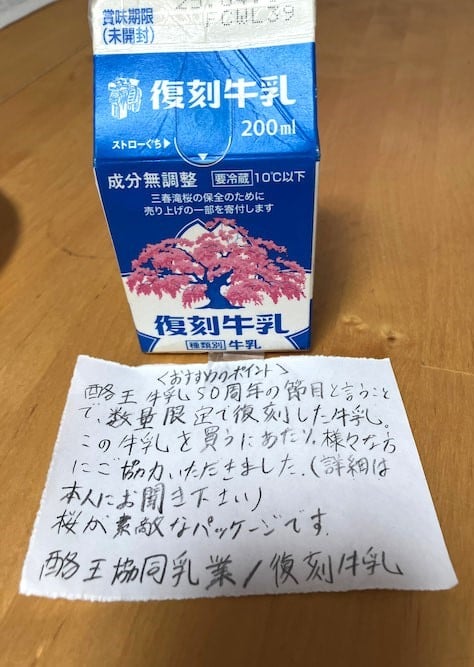 賞味期限
(未開封)
FCWL39
復刻牛乳
200ml
ストローぐち▶
成分無調整 要冷蔵 10℃以下
三春滝桜の保全のために
売り上げの一部を寄付します
復刻牛乳
種類別 牛乳
<おすすめのポイント>
酪王牛乳50周年の節目と言うこと
で、数量限定で復刻した牛乳。
この牛乳を買うにあたり、様々な方
にご協力いただきました。(詳細は
本人にお聞き下さい)
桜が素敵なパッケージです。
酪王協同乳業/復刻牛乳